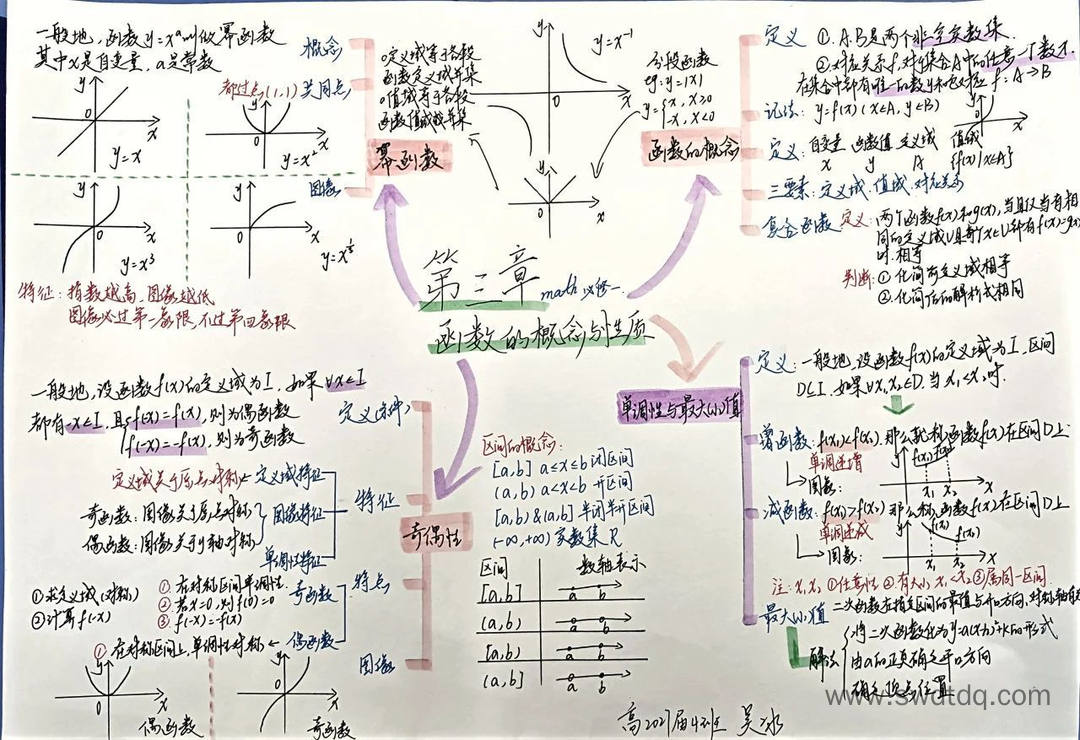 一般地,函数y=xᵃ叫做幂函数
其中x是自变量,a是常数
概念
都过点(1,1)
共同点
y
x
0
y=x
y
x
0
y=x²
y
x
0
y=x³
y
x
0
y=x^½
图像
特征:指数越高,图像越低
图像必过第一象限,不过第四象限
幂函数
①定义域等于各段
函数定义域并集
②值域等于各段
函数值域并集
y
x
0
y=x⁻¹
分段函数
eg:y=|x|
y={x,x≥0
-x,x<0
y
x
0
函数的概念
定义
①A.B是两个非空实数集.
②对应关系f,对于集合A中的任意一个数x.
在集合中都有唯一的数y和它对应 f:A→B
记法:y=f(x)(x∈A,y∈B)
定义:自变量 函数值 定义域 值域
x y A {f(x)|x∈A}
三要素:定义域.值域.对应关系
复合函数
定义:两个函数f(x)和g(x),当且仅当有相
同的定义域U且每个x∈U都有f(x)=g(x)
时.相等
判断:①化简前定义域相等
②化简后的解析式相同
第三章
math 必修一.
函数的概念与性质
一般地,设函数f(x)的定义域为I,如果∀x∈I
都有-x∈I,且f(-x)=f(x),则为偶函数
f(-x)=-f(x),则为奇函数
定义域关于原点对称←定义域特征
奇函数:图像关于原点对称
偶函数:图像关于y轴对称
图像特征
单调性特征
特征
奇偶性
①求定义域(对称)
②计算f(-x)
①在对称区间单调性
②若x=0,则f(0)=0
③f(-x)=-f(x)
奇函数
特点
①在对称区间上,单调性对称←偶函数
图像
y
x
0
偶函数
y
x
0
奇函数
区间的概念:
[a,b] a≤x≤b 闭区间
(a,b) a<x<b 开区间
[a,b)&(a,b] 半闭半开区间
(-∞,+∞) 实数集R
区间
数轴表示
[a,b]
a b
(a,b)
a b
[a,b)
a b
(a,b]
a b
单调性与最大(小)值
定义:一般地,设函数f(x)的定义域为I,区间
D⊆I,如果∀x₁,x₂∈D.当x₁<x₂时.
增函数:f(x₁)<f(x₂).那么就称函数f(x)在区间D上
单调递增
图像:
f(x₁) f(x₂)
x₁ x₂
x
减函数:f(x₁)>f(x₂) 那么称函数f(x)在区间D上
单调递减
图像:
f(x₁)
f(x₂)
x₁ x₂
x
注:x₁x₂①任意性②有大小x₁<x₂③属同一区间.
最大(小)值
二次函数在指定区间的最值与开口方向,对称轴有关
解法
将二次函数化为y=a(x-h)²+k的形式
由a的正负确定开口方向
确定顶点位置
www.swdtdq.com
高2021届4班 吴冰